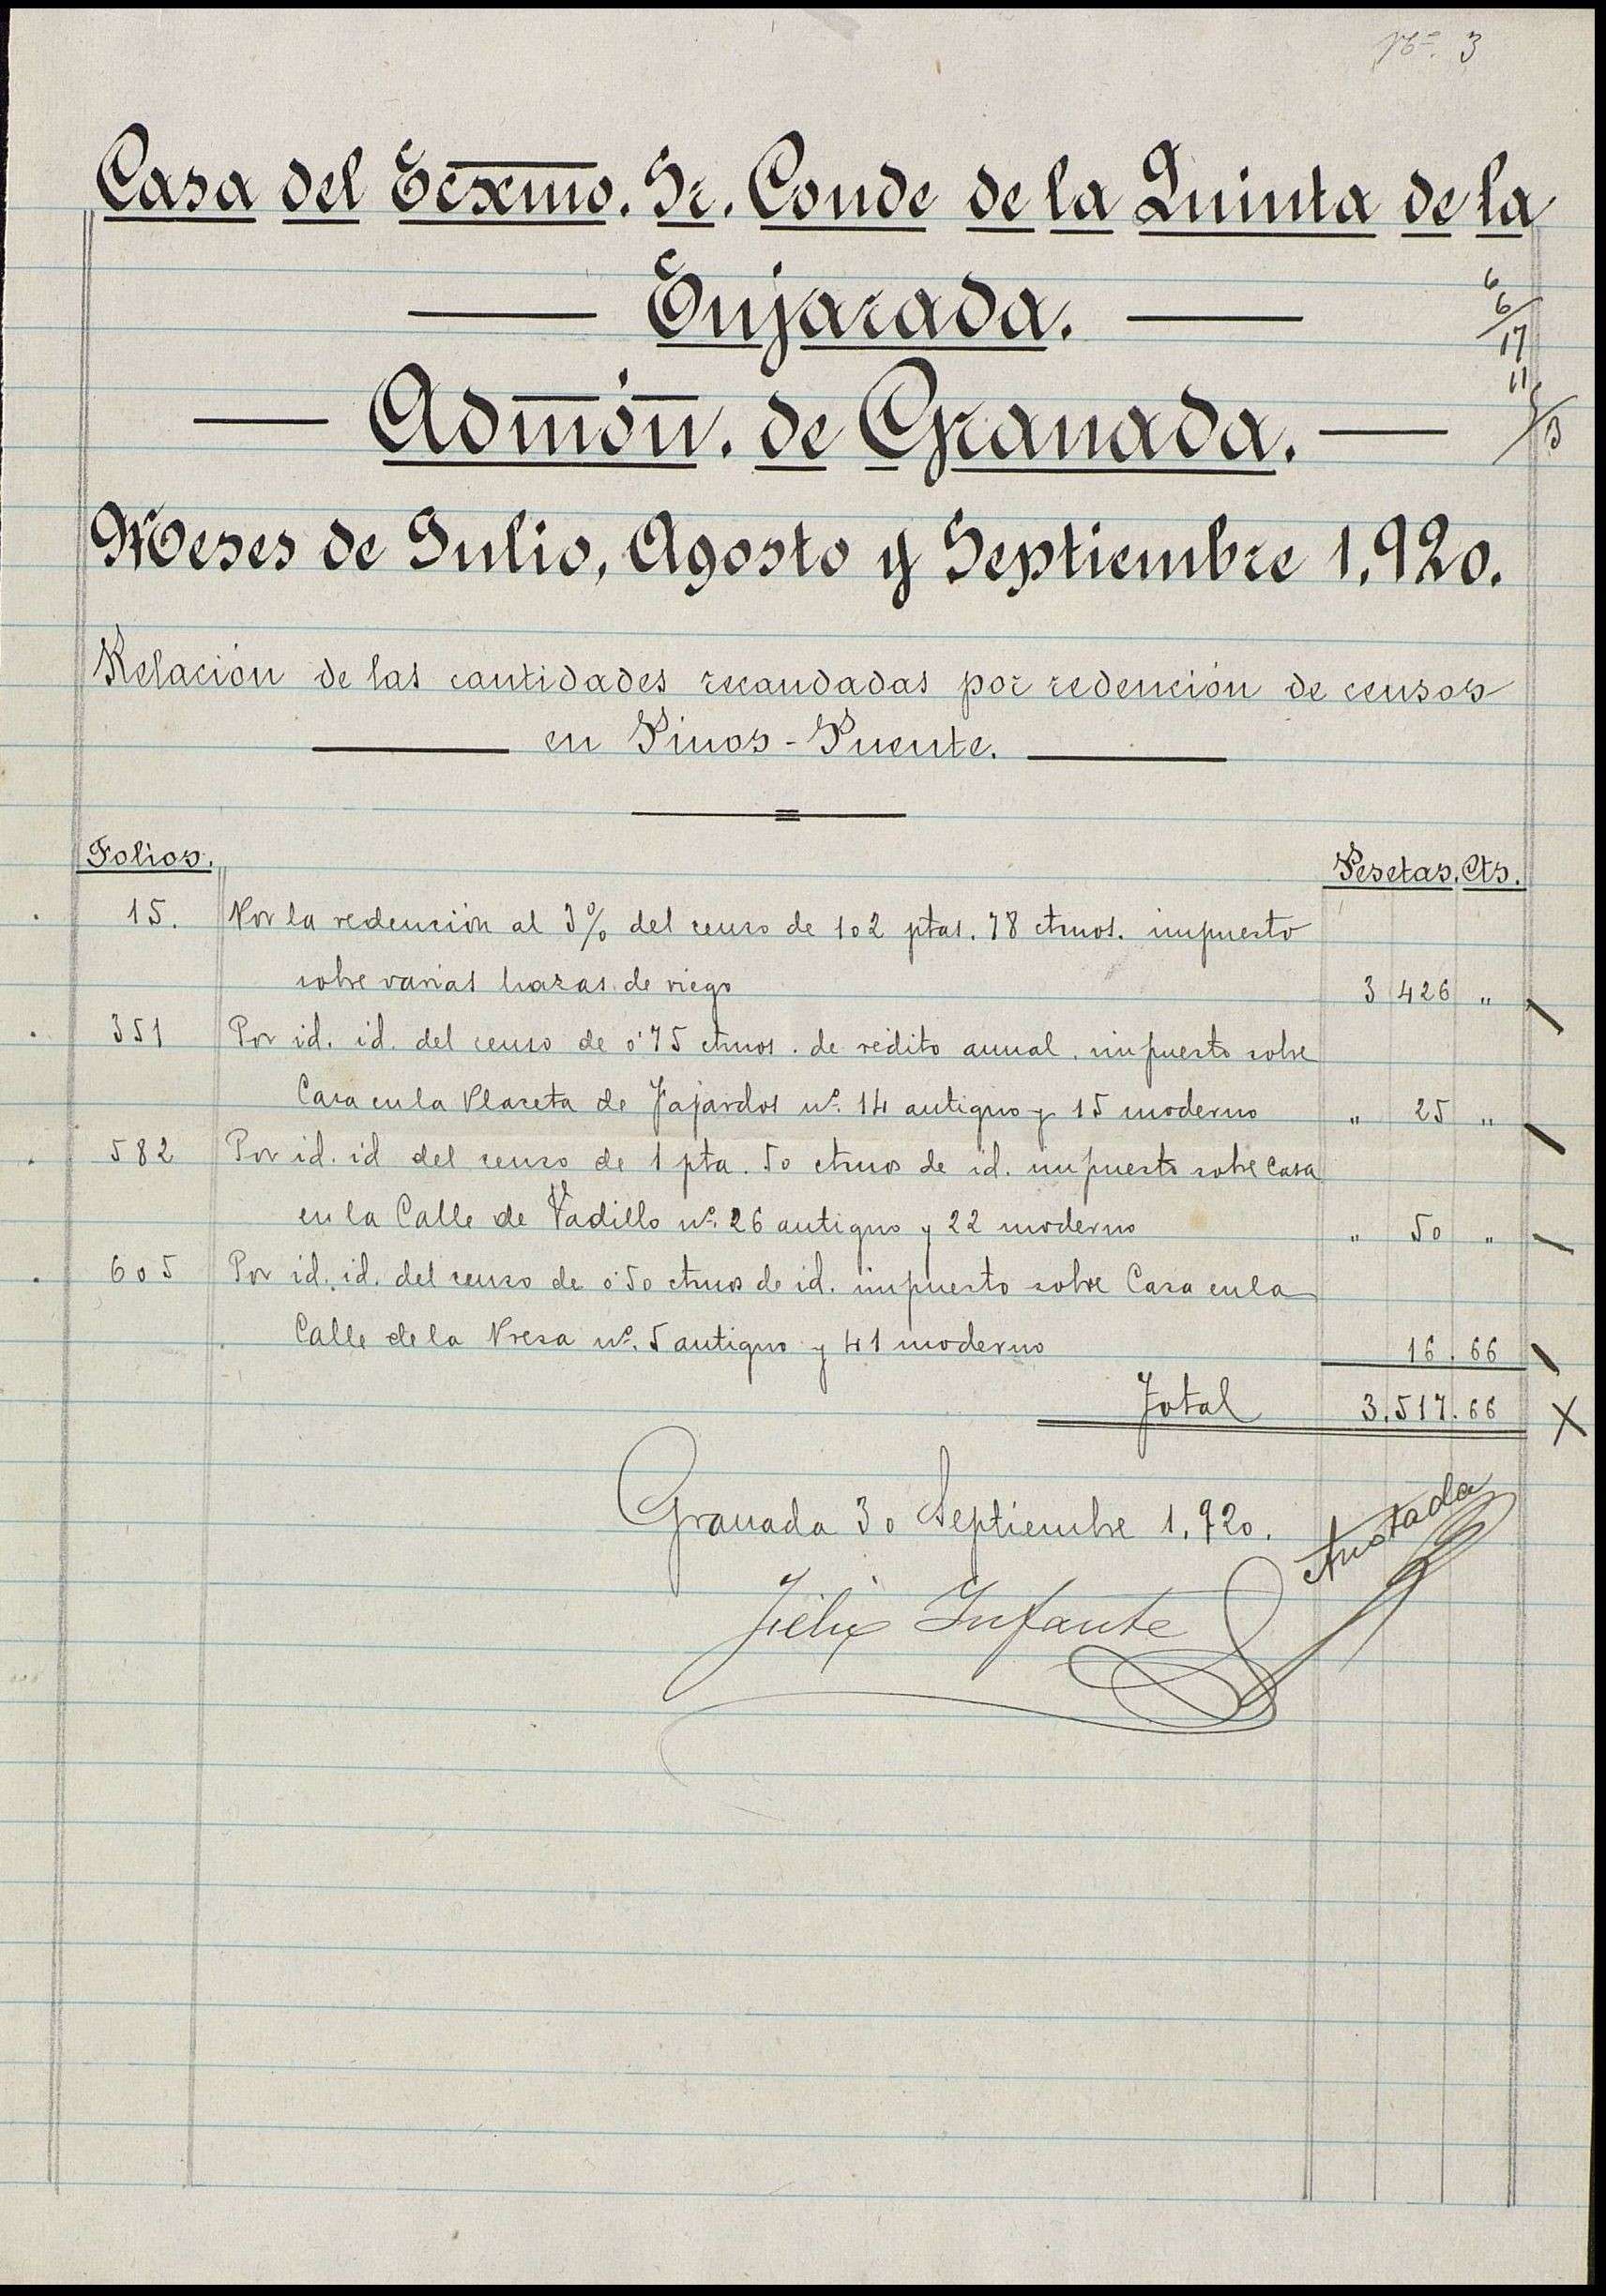 Nº. 3
Casa del Ecxmo. Sr. Conde de la Quinta de la
Enjarada.
Admón. de Granada.
Meses de Julio, Agosto y Septiembre 1,920.
Relación de las cantidades recaudadas por redención de censos
en Pinos-Puente.
Folios. Pesetas. Cts.
15. Por la redención al 3% del censo de 102 ptas. 78 ctmos. impuesto
sobre varias hazas de riego 3 426 "
351 Por id. id. del censo de 0'75 ctmos. de rédito anual, impuesto sobre
Casa en la Placeta de Fajardos nº. 14 antiguo y 15 moderno " 25 "
582 Por id. id del censo de 1 pta. 50 ctmos de id. impuesto sobre Casa
en la Calle de Vadillo nº. 26 antiguo y 22 moderno " 50 "
605 Por id. id. del censo de 0'50 ctmos de id. impuesto sobre Casa en la
Calle de la Presa nº. 5 antiguo y 41 moderno 16.66
Total 3.517.66
Granada 30 Septiembre 1,920.
Anotada
Félix Infante